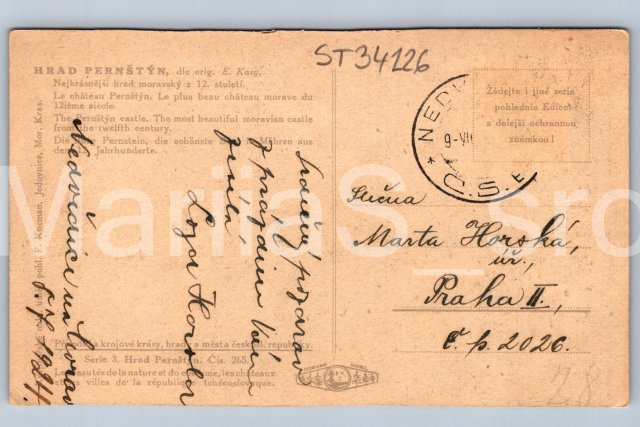 ST34126
HRAD PERNŠTÝN, die orig. E. Kosy.
Nejkrásnější hrad moravský z 12. století.
Le château Pernštýn. Le plus beau château morave du
12ième siècle.
The Pernštýn castle. The most beautiful moravian castle
from the twelfth century.
Die Pernstein, die schönste in Mähren aus
dem Jahrhunderte.
Žádejte i jiné serie
pohlednic Edice
s delejší ochrannou
známkou!
NEDV
9-VII
Č.S.
Srdečný pozdrav
z prázdnin
Nedvědice
Slečna
Marta Horská,
úř.,
Praha II,
č. p. 2026.
pohl. F. Kocman, Jedovnice, Mor. Kras.
Přírodní a krojové krásy, hrady a města českosl. republiky.
Serie 3. Hrad Pernštýn. Čís. 265.
Les beautés de la nature et du costume, les châteaux
et les villes de la république tchécoslovaque.
28
MarijaS_sro